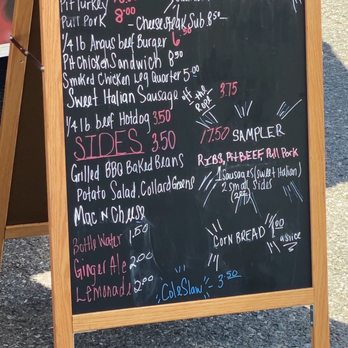 Pit Turkey
Pull Pork 8.00
Cheesesteak Sub 8.50
1/4 lb Angus beef Burger 6.50
Pit Chicken Sandwich 8.50
Smoked Chicken Leg Quarter 5.00
Sweet Italian Sausage off the Rope 3.75
1/4 lb beef Hotdog 3.50
SIDES 3.50
Grilled BBQ Baked Beans
Potato Salad, Collard Greens
Mac N Cheese
Bottle Water 1.50
Ginger Ale 2.00
Lemonade 2.00
17.50 SAMPLER
RIBS, Pit BEEF Pull Pork
1 Sausages (Sweet Italian)
2 small sides
CORN BREAD 1.00
a slice
Cole Slaw - 3.50